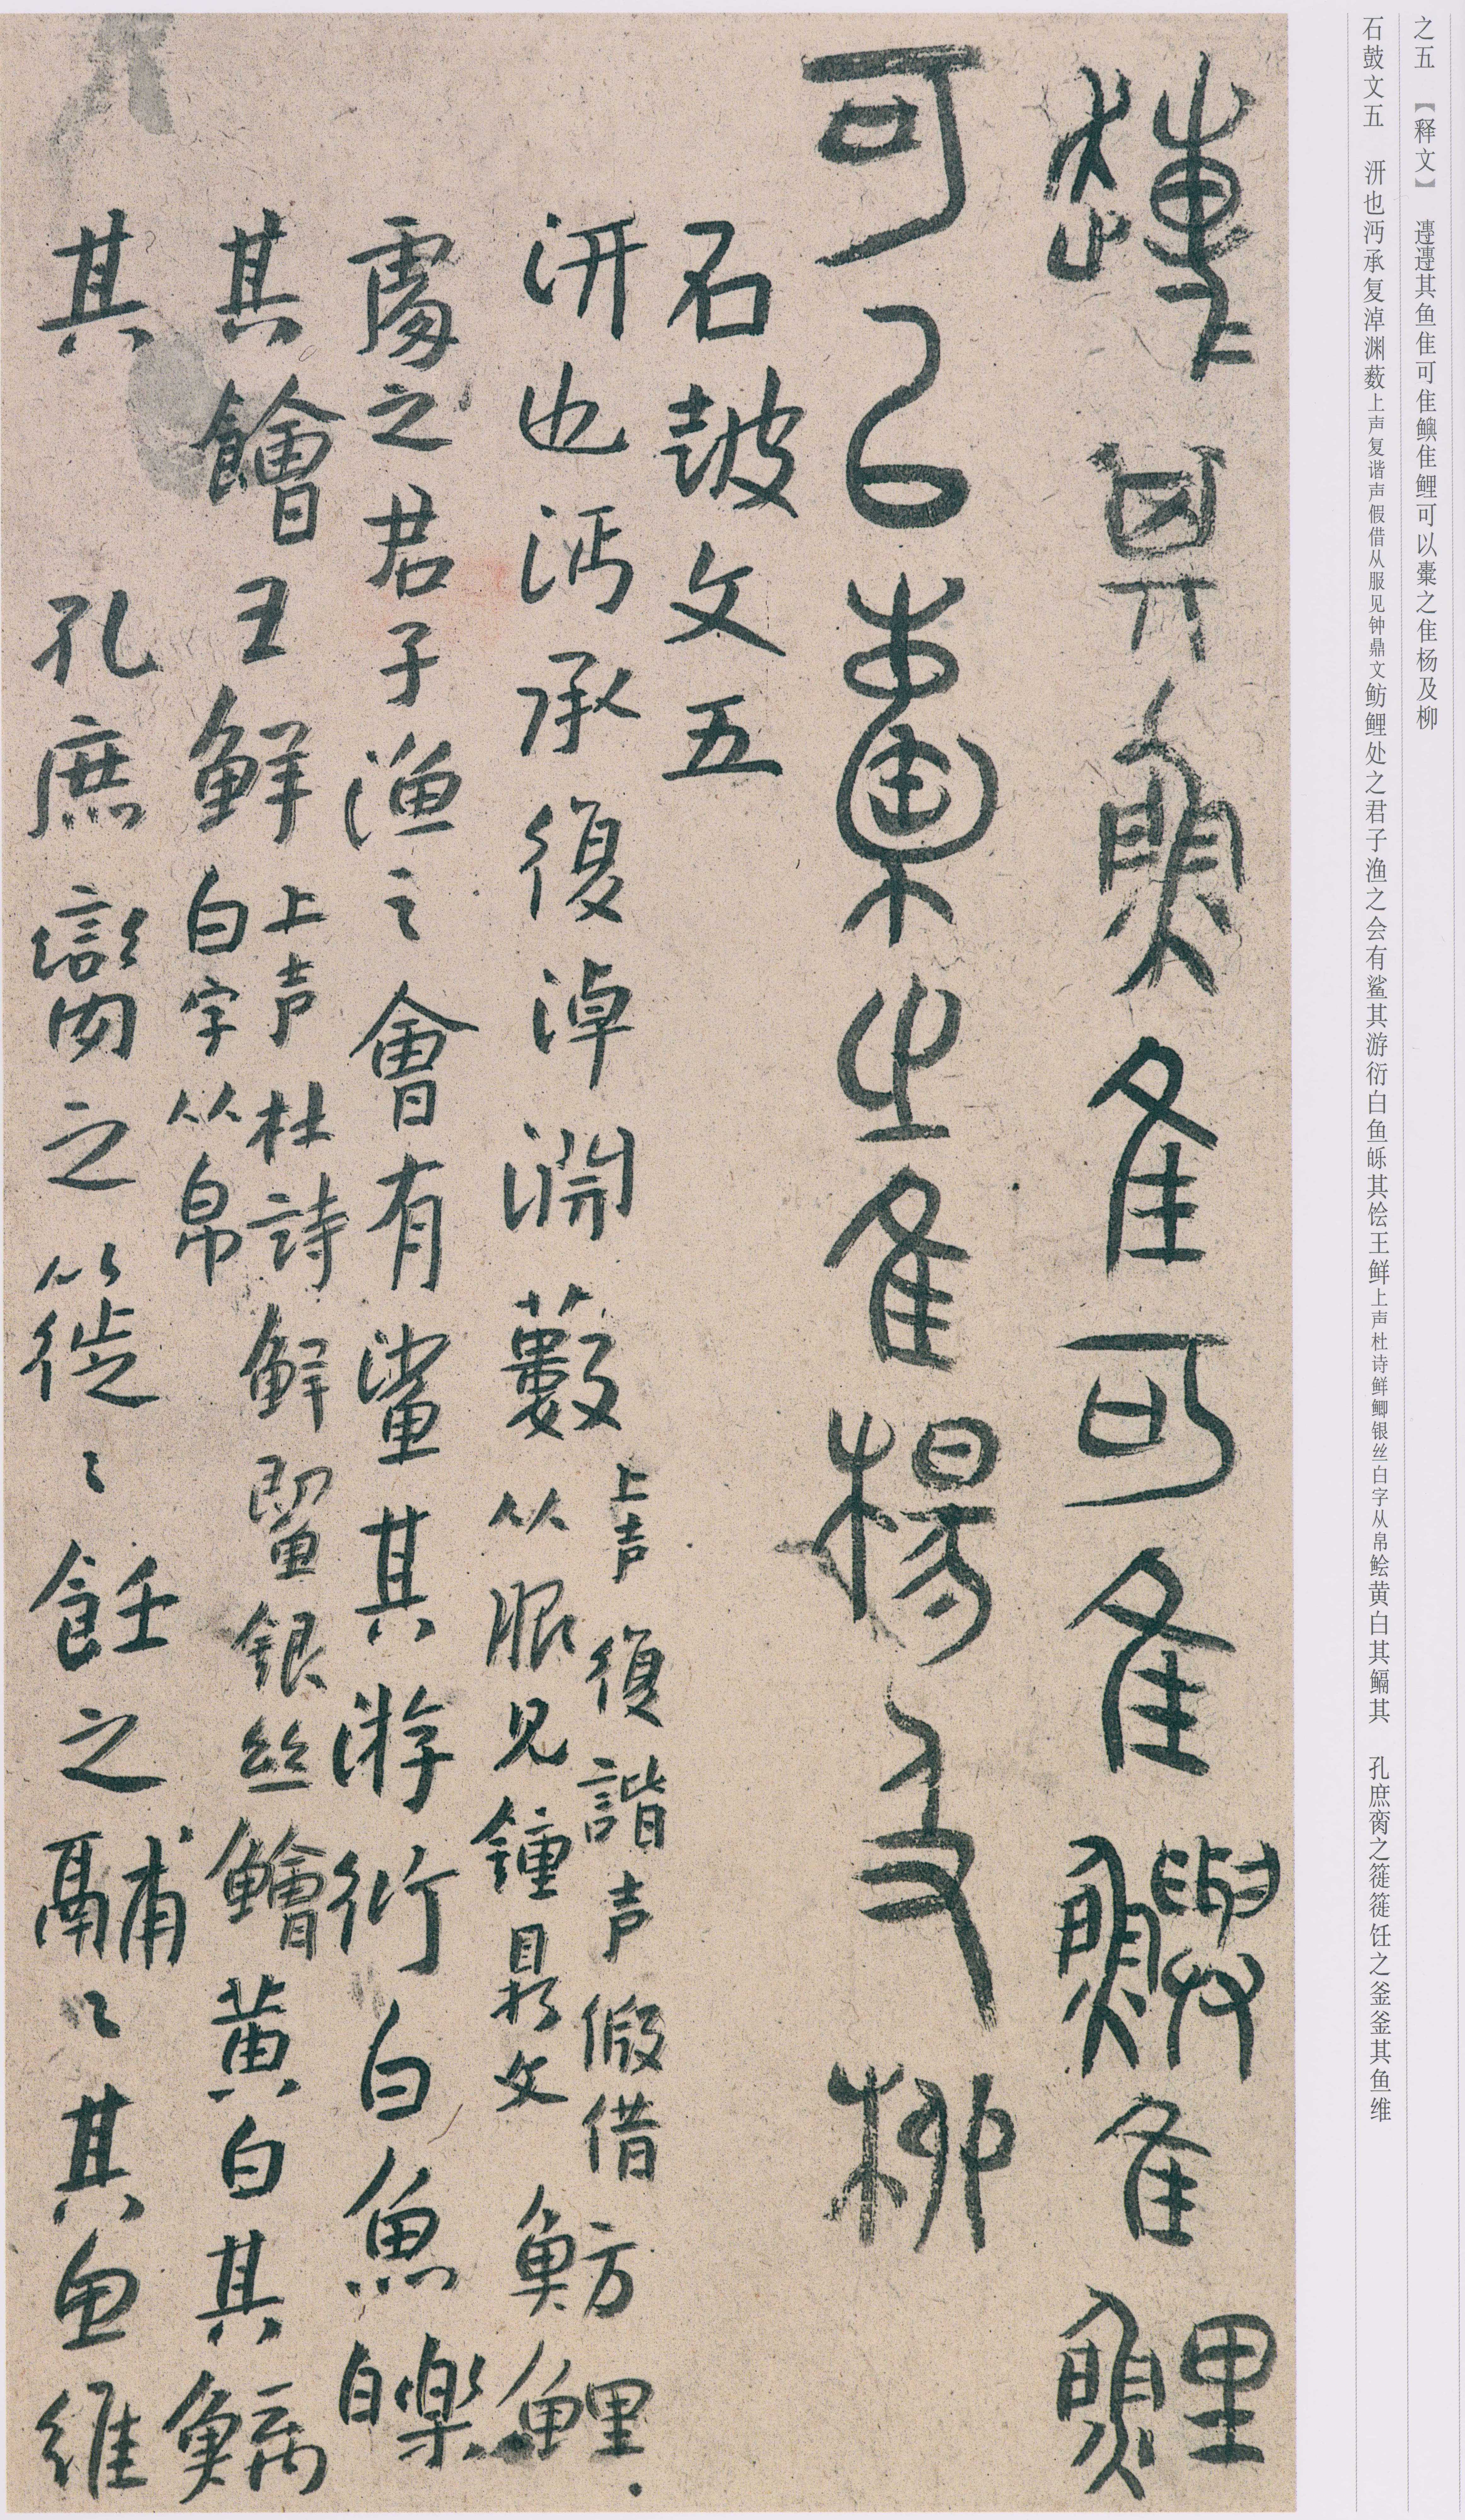 之五 【释文】 𨘷𨘷其鱼隹可隹鱮隹鲤可以橐之隹杨及柳
石鼓文五 汧也沔承复淖渊薮上声复谐声假借从服见钟鼎文鲂鲤处之君子渔之会有鲨其游衍白鱼皪其侩王鲜上声杜诗鲜鲫银丝白字从帛鲙黄白其鳊其 孔庶脔之簁簁饪之釜釜其鱼维
其魚隹可隹鱮隹鯉
可以橐之隹楊及柳
石皷文五
汧也沔承復淖淵藪上声復諧声假借从服見鐘鼎文魴鯉
處之君子渔之會有鲨其游衍白魚皪
其鱠王鲜上声杜詩鲜鯽银丝白字从帛鱠黄白其鯿
其 孔庶臠之簁〻飪之鬴〻其魚維